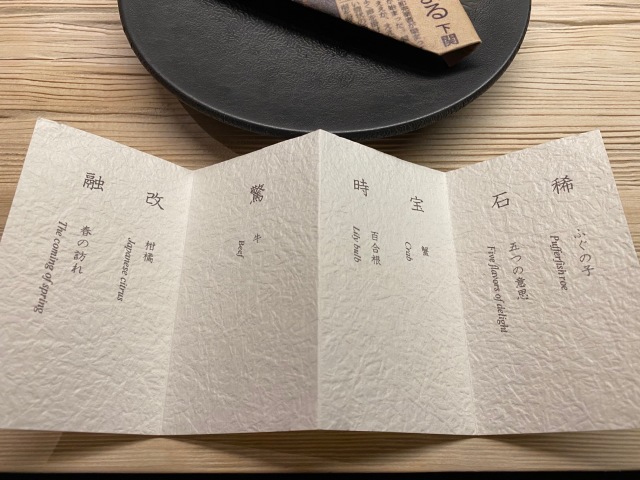 稀
ふぐの子
Pufferfish roe
石
五つの意思
Five flavors of delight
宝
蟹
Crab
時
百合根
Lily bulb
驚
牛
Beef
改
柑橘
Japanese citrus
融
春の訪れ
The coming of spring
下関